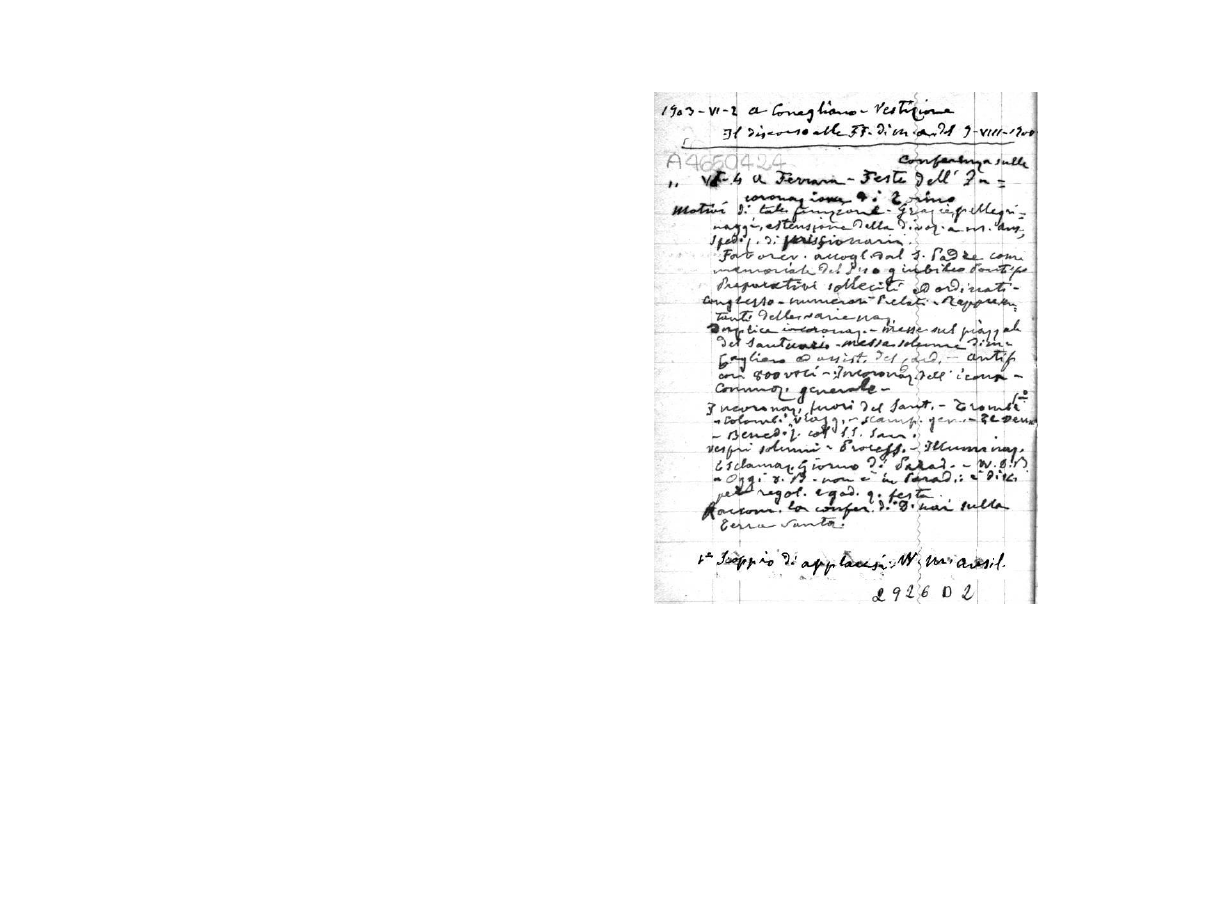 1903-VI-2 a Conegliano - Vestizione
Il discorso alle FF. di m. a. del 9-VIII-1900
A4650424
Conferenza sulle
" VI-4 a Ferrara - Feste dell' In=
coronazione di Torino
Motivi di tale funzione - Grazie, pellegri-
naggi, estensione della divoz. a m. aus,
sped. di missionari.
Favorev. accogl. dal S. Padre come
memoriale del suo giubileo Pontif
Preparativi solleciti e ordinati -
Congresso - numerosi Prelati - Rappresen
tanti delle varie naz.
Duplice incoronaz. - messe sul piazzale
del Santuario - messa solenne di m.
Cagliero e assist. del card. - antif
con 800 voci - Incoronaz. dell' icona -
Commoz. generale -
Incoronaz. fuori del Sant. - Trombe
- Colombi viagg. - scamp. gen. - Te Deum
- Benediz. col SS. Sacr.
Vespri solenni - Process. - Illuminaz.
Esclamaz. Giorno di Parad. - W. D. B.
- Oggi D. B. non è in Parad.: è disc.
per regol. e god. q. festa.
Raccom. la confer. di D. sulla
Terra Santa.
1° Scoppio di applausi: W. m. ausil.
2926 D 2